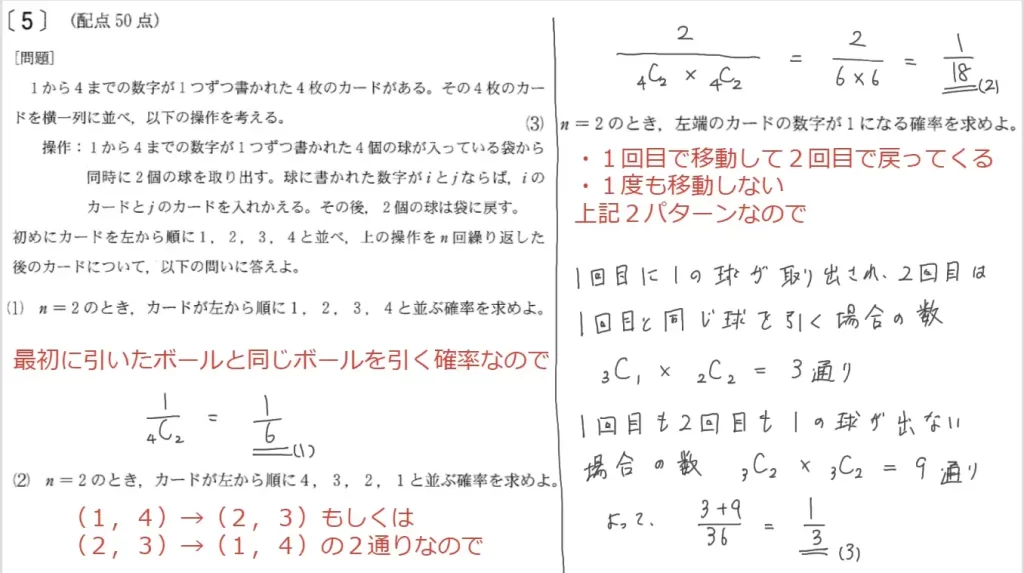 〔5〕 (配点 50 点)
[問題]
1から4までの数字が1つずつ書かれた4枚のカードがある。その4枚のカー
ドを横一列に並べ，以下の操作を考える。
操作：1から4までの数字が1つずつ書かれた4個の球が入っている袋から
同時に2個の球を取り出す。球に書かれた数字がiとjならば，iの
カードとjのカードを入れかえる。その後，2個の球は袋に戻す。
初めにカードを左から順に1，2，3，4と並べ，上の操作をn回繰り返した
後のカードについて，以下の問いに答えよ。
(1) n＝2のとき，カードが左から順に1，2，3，4と並ぶ確率を求めよ。
最初に引いたボールと同じボールを引く確率なので
1/₄C₂ = 1/6 (1)
(2) n＝2のとき，カードが左から順に4，3，2，1と並ぶ確率を求めよ。
（1，4）→（2，3）もしくは
（2，3）→（1，4）の２通りなので
2/(₄C₂ × ₄C₂) = 2/(6×6) = 1/18 (2)
(3) n＝2のとき，左端のカードの数字が1になる確率を求めよ。
・１回目で移動して２回目で戻ってくる
・１度も移動しない
上記２パターンなので
1回目に1の球が取り出され、2回目は
1回目と同じ球を引く場合の数
₃C₁ × ₂C₂ = 3通り
1回目も2回目も1の球が出ない
場合の数 ₃C₂ × ₃C₂ = 9通り
よって、 (3+9)/36 = 1/3 (3)